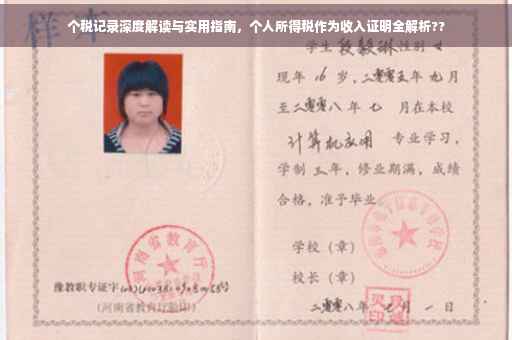 个税记录深度解读与实用指南，个人所得税作为收入证明全解析??
样本
学生段毅琳性别女
现年16岁，二零零五年九月
至二零零八年七月在本校
计算机应用 专业学习，
学制三年，修业期满，成绩
合格，准予毕业
学校（章）
校长（章）
二零零八年七月一日
河南省教育厅
豫教职专证字
（河南省教育厅验印）